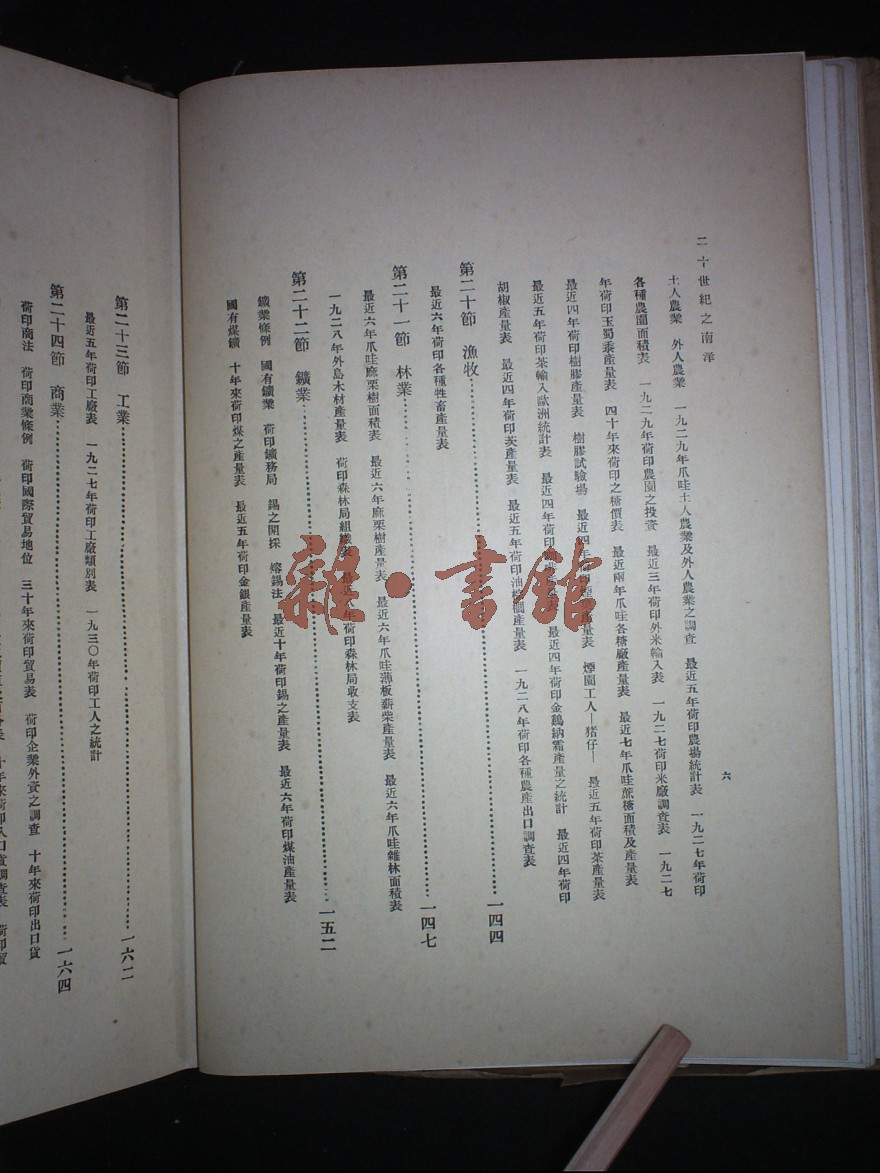 二十世紀之南洋
六
土人農業　外人農業　一九二九年爪哇土人農業及外人農業之調查　最近五年荷印農場統計表　一九二七年荷印
各種農園面積表　一九二九年荷印農園之投資　最近三年荷印外米輸入表　一九二七荷印米廠調查表　一九二七
年荷印玉蜀黍產量表　四十年來荷印之糖價表　最近兩年爪哇各糖廠產量表　最近七年爪哇蔗糖面積及產量表
最近四年荷印樹膠產量表　樹膠試驗場　最近四年荷印煙產量表　煙園工人—猪仔—　最近五年荷印茶產量表
最近五年荷印茶輸入歐洲統計表　最近四年荷印　表　最近四年荷印金鷄納霜產量之統計　最近四年荷印
胡椒產量表　最近四年荷印茨產量表　最近五年荷印油　產量表　一九二八年荷印各種農產出口調查表
第二十節　漁牧……一四四
最近六年荷印各種牲畜產量表
第二十一節　林業……一四七
最近六年爪哇麻栗樹面積表　最近六年麻栗樹產量表　最近六年爪哇薄板薪柴產量表　最近六年爪哇雜林面積表
一九二八年外島木材產量表　荷印森林局組織表　最近八年荷印森林局收支表
第二十二節　鑛業……一五二
鑛業條例　國有鑛業　荷印鑛務局　錫之開採　熔錫法　最近十年荷印錫之產量表　最近六年荷印煤油產量表
國有煤鑛　十年來荷印煤之產量表　最近五年荷印金銀產量表
第二十三節　工業……一六二
最近五年荷印工廠表　一九二七年荷印工廠類別表　一九三〇年荷印工人之統計
第二十四節　商業……一六四
荷印商法　荷印商業條例　荷印國際貿易地位　三十年來荷印貿易表　荷印企業外資之調查　十年來荷印出口貨
雜·書館